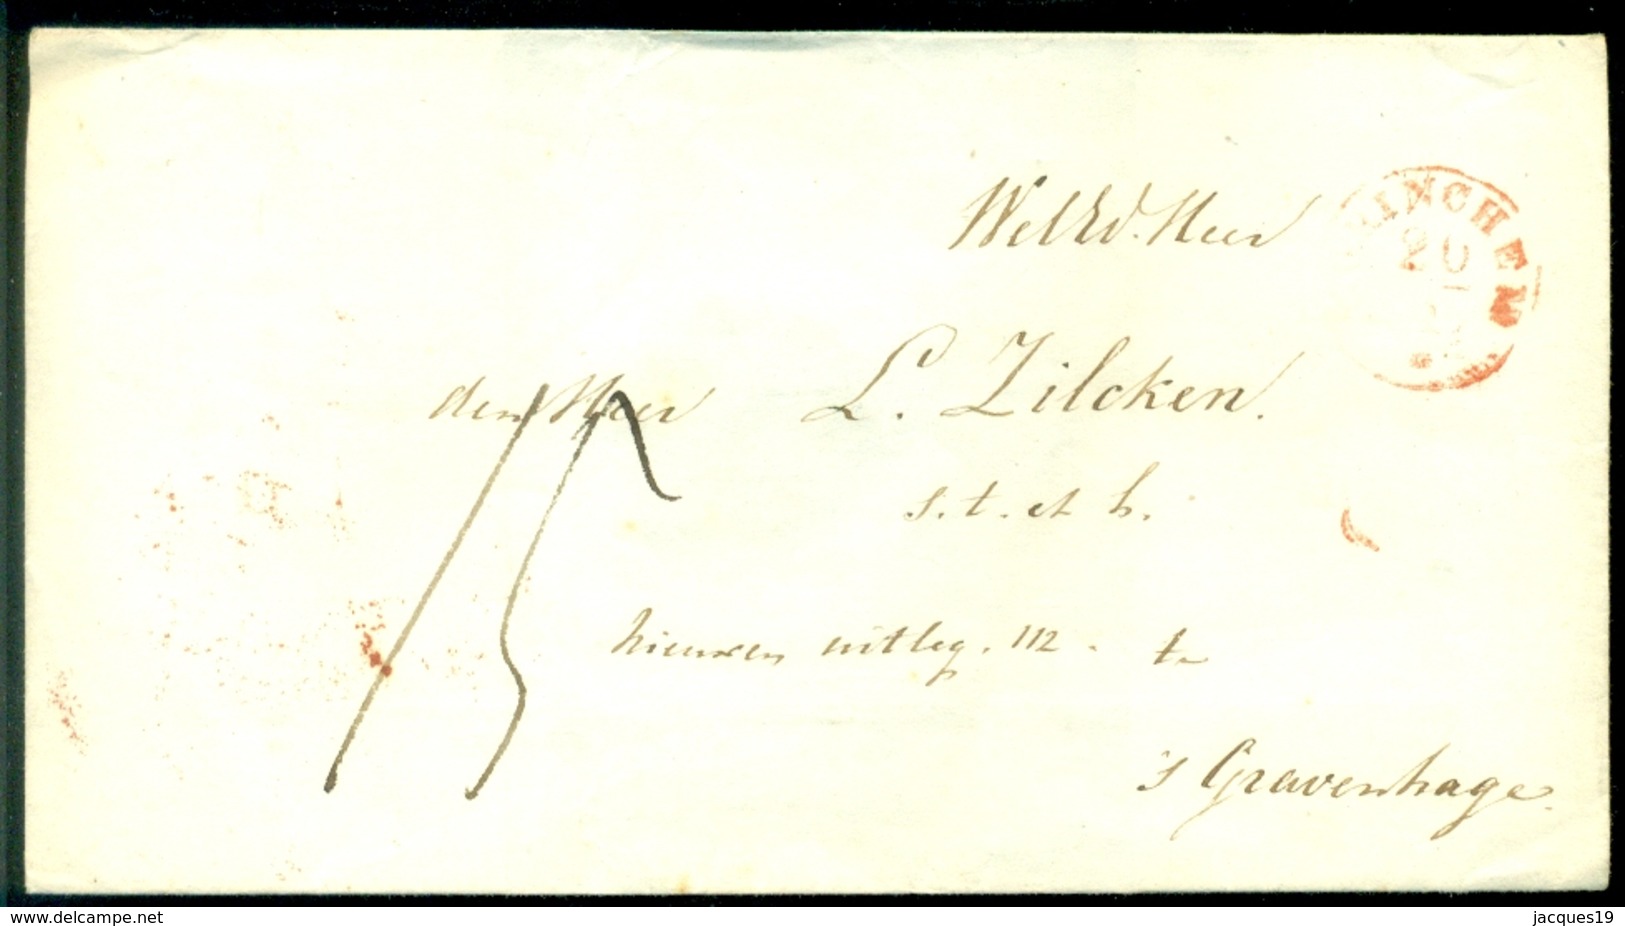 WelEd. Heer
den Heer L. Zilcken.
s. t. et h.
nieuwen uitleg. 112. te
's Gravenhage.
15
RINCHEM
20
www.delcampe.net
jacques19